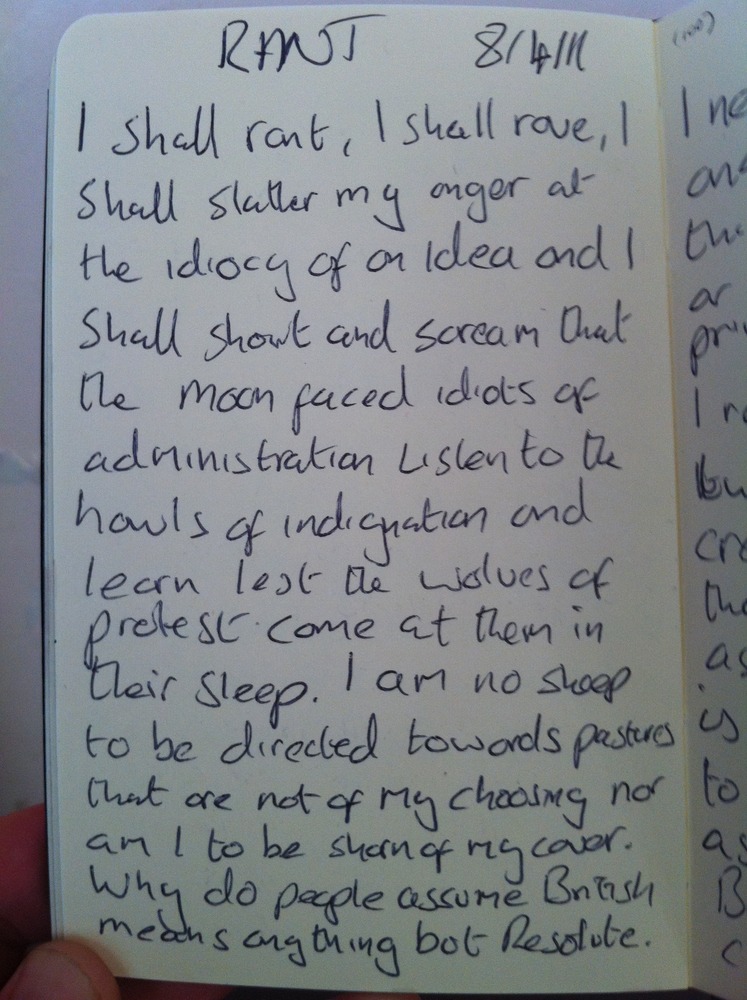 RANT 8/4/11
I shall rant, I shall rave, I
shall slatter my anger at
the idiocy of an idea and I
shall shout and scream that
the moon faced idiots of
administration listen to the
howls of indignation and
learn lest the wolves of
protest come at them in
their sleep. I am no sheep
to be directed towards pastures
that are not of my choosing nor
am I to be shorn of my cover.
Why do people assume British
means anything but Resolute.
(100)
I ne
and
the
or
pri
I r
bu
cre
the
as
is
to
as
B
c